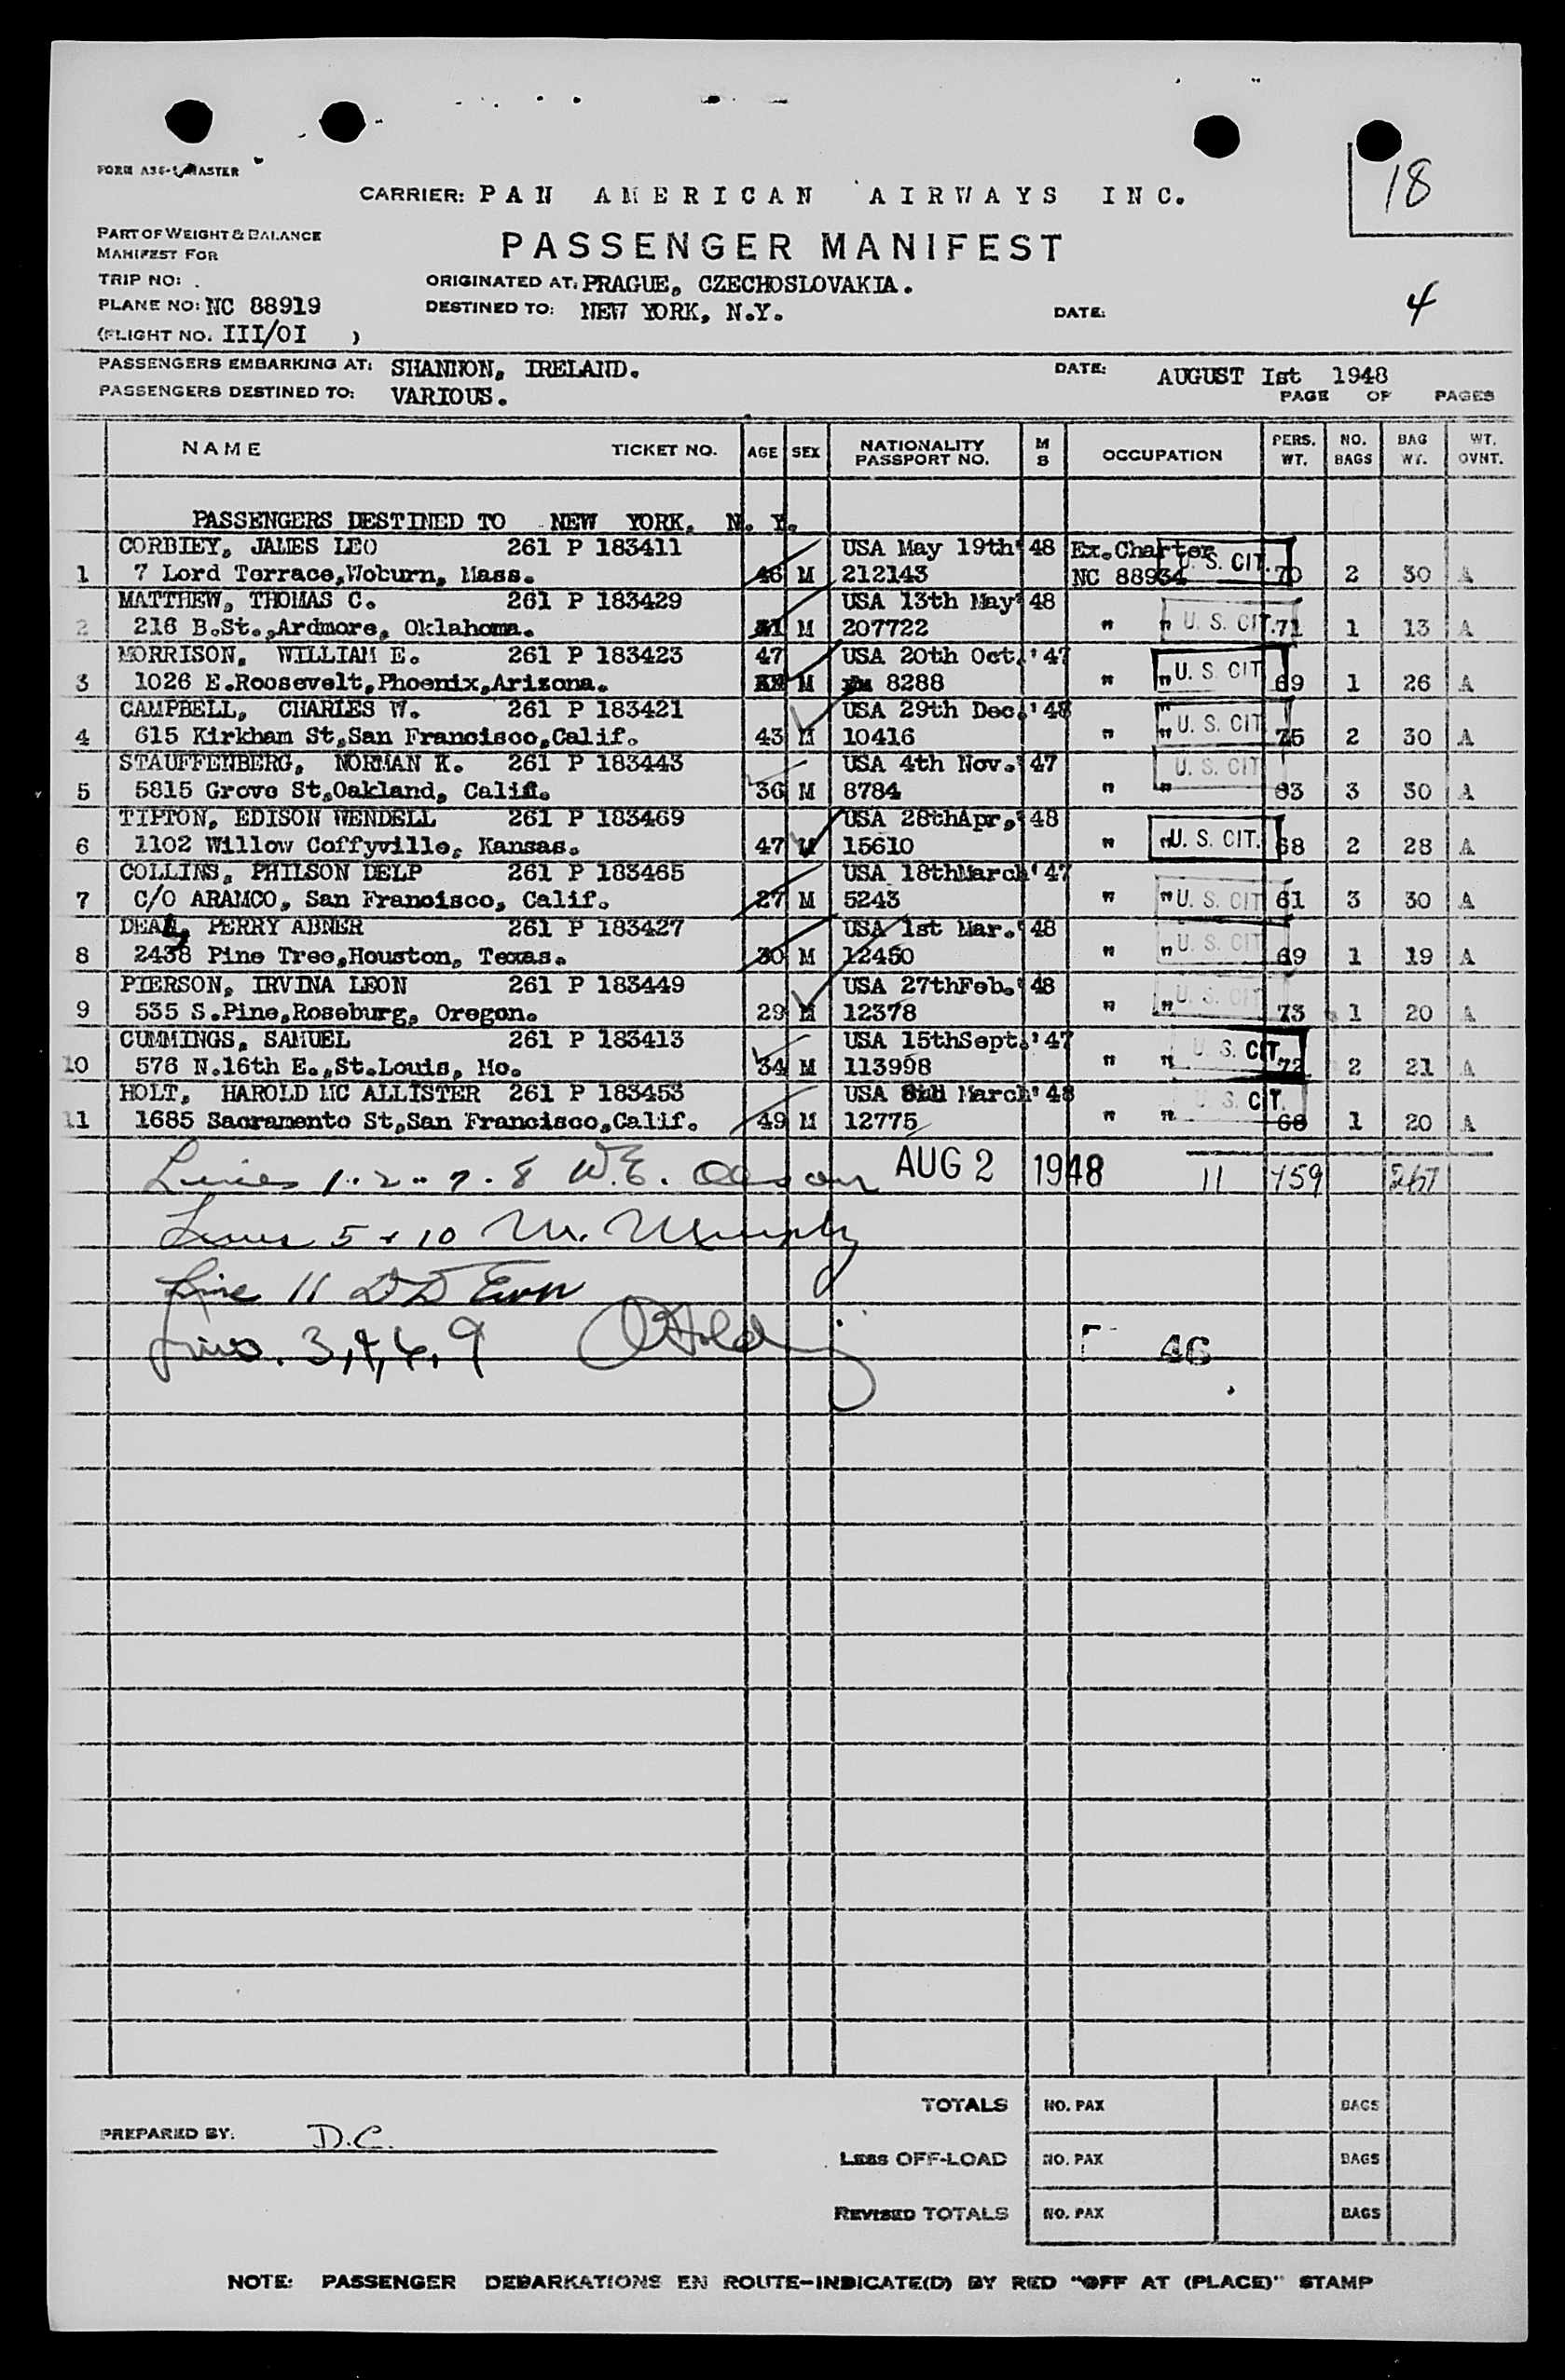 18
FORM A36-1 MASTER
CARRIER: PAN AMERICAN AIRWAYS INC.
PART OF WEIGHT & BALANCE
MANIFEST FOR
PASSENGER MANIFEST
TRIP NO: .
ORIGINATED AT: PRAGUE, CZECHOSLOVAKIA.
4
PLANE NO: NC 88919
DESTINED TO: NEW YORK, N.Y.
DATE:
(FLIGHT NO. III/OI )
PASSENGERS EMBARKING AT: SHANNON, IRELAND.
DATE: AUGUST Ist 1948
PASSENGERS DESTINED TO: VARIOUS.
PAGE OF PAGES
NAME TICKET NO. AGE SEX NATIONALITY PASSPORT NO. M S OCCUPATION PERS. WT. NO. BAGS BAG WT. WT. OVNT.
PASSENGERS DESTINED TO NEW YORK, N. Y.
CORBIEY, JAMES LEO 261 P 183411 USA May 19th'48 Ex.Charter U. S. CIT.
1 7 Lord Terrace,Woburn, Mass. 46 M 212143 NC 88934 70 2 30 A
MATTHEW, THOMAS C. 261 P 183429 USA 13th May'48
2 216 B.St.,Ardmore, Oklahoma. M 207722 " " U. S. CIT. 71 1 13 A
MORRISON, WILLIAM E. 261 P 183423 47 USA 20th Oct.'47
3 1026 E.Roosevelt,Phoenix,Arizona. M 8288 " " U. S. CIT 69 1 26 A
CAMPBELL, CHARLES W. 261 P 183421 USA 29th Dec.'48
4 615 Kirkham St,San Francisco,Calif. 43 M 10416 " " U. S. CIT 75 2 30 A
STAUFFENBERG, NORMAN K. 261 P 183443 USA 4th Nov.'47 U. S. CIT
5 5815 Grove St,Oakland, Calif. 36 M 8784 " " 83 3 30 A
TIPTON, EDISON WENDELL 261 P 183469 USA 28thApr,'48
6 1102 Willow Coffyville, Kansas. 47 M 15610 " " U. S. CIT. 68 2 28 A
COLLINS, PHILSON DELP 261 P 183465 USA 18thMarch'47
7 C/O ARAMCO, San Francisco, Calif. 27 M 5243 " " U. S. CIT 61 3 30 A
PERRY ABNER 261 P 183427 USA 1st Mar.'48
8 2438 Pine Tree,Houston, Texas. 30 M 12450 " " U. S. CIT 69 1 19 A
PIERSON, IRVINA LEON 261 P 183449 USA 27thFeb.'48
9 535 S.Pine,Roseburg, Oregon. 29 M 12378 " " U. S. CIT 73 1 20 A
CUMMINGS, SAMUEL 261 P 183413 USA 15thSept.'47
10 576 N.16th E.,St.Louis, Mo. 34 M 113998 " " U. S. CIT 72 2 21 A
HOLT, HAROLD MC ALLISTER 261 P 183453 USA March'48
11 1685 Sacramento St,San Francisco,Calif. 49 M 12775 " " U. S. CIT. 68 1 20 A
Lines 1..2..7.8 W.E. Olson AUG 2 1948 11 759 267
Lines 5 + 10 M. Murphy
Line 11
Lines. 3,4,6,9
46
TOTALS NO. PAX BAGS
PREPARED BY: D.C.
LESS OFF-LOAD NO. PAX BAGS
REVISED TOTALS NO. PAX BAGS
NOTE: PASSENGER DEBARKATIONS EN ROUTE-INDICATE(D) BY RED "OFF AT (PLACE)" STAMP